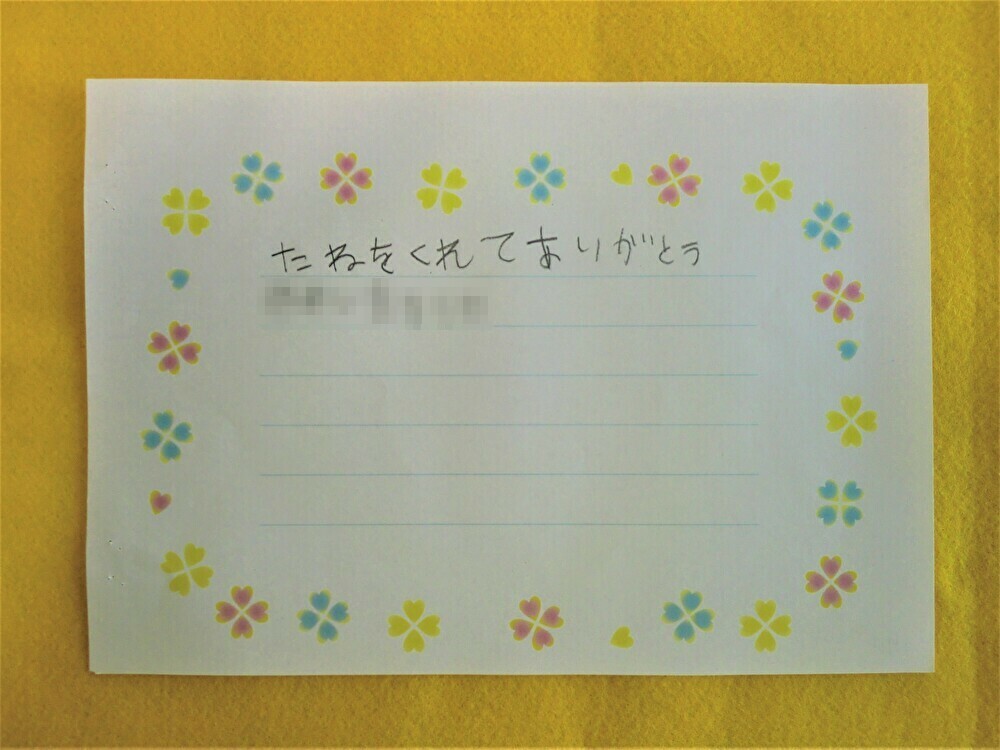 たねをくれてありがとう